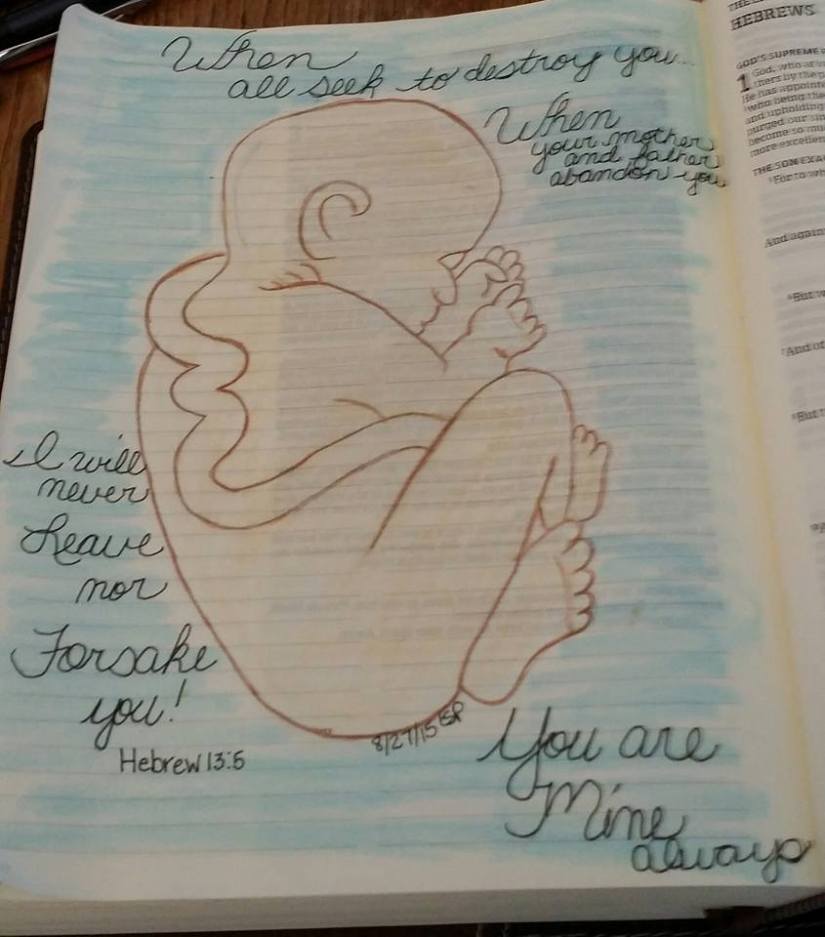 When
all seek to destroy you...
When
your mother
and father
abandon you
I will
never
Leave
nor
Forsake
you!
Hebrew 13:5
8/27/15 ESP
You are
Mine
always
HEBREWS
GOD'S SUPREME
1 God, who
thers by the
He has appoint
who being the
and upholding
purged our
become so
more excellen
THE SON EXA
For to
And again
But
And
But